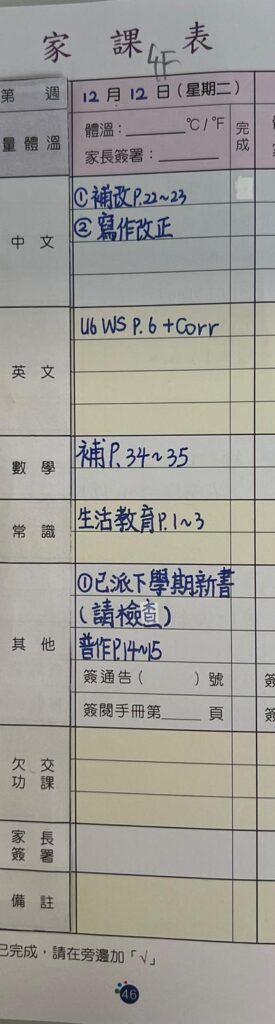 家課表
4F
第 週
12月12日(星期二)
量體溫
體溫：______℃/℉
家長簽署：______
完成
中文
①補改P.22~23
②寫作改正
英文
U6 WS P.6 + Corr
數學
補P.34~35
常識
生活教育P.1~3
其他
①已派下學期新書
(請檢查)
普作P.14~15
簽通告( )號
簽閱手冊第____頁
欠交功課
家長簽署
備註
已完成，請在旁邊加「√」
46